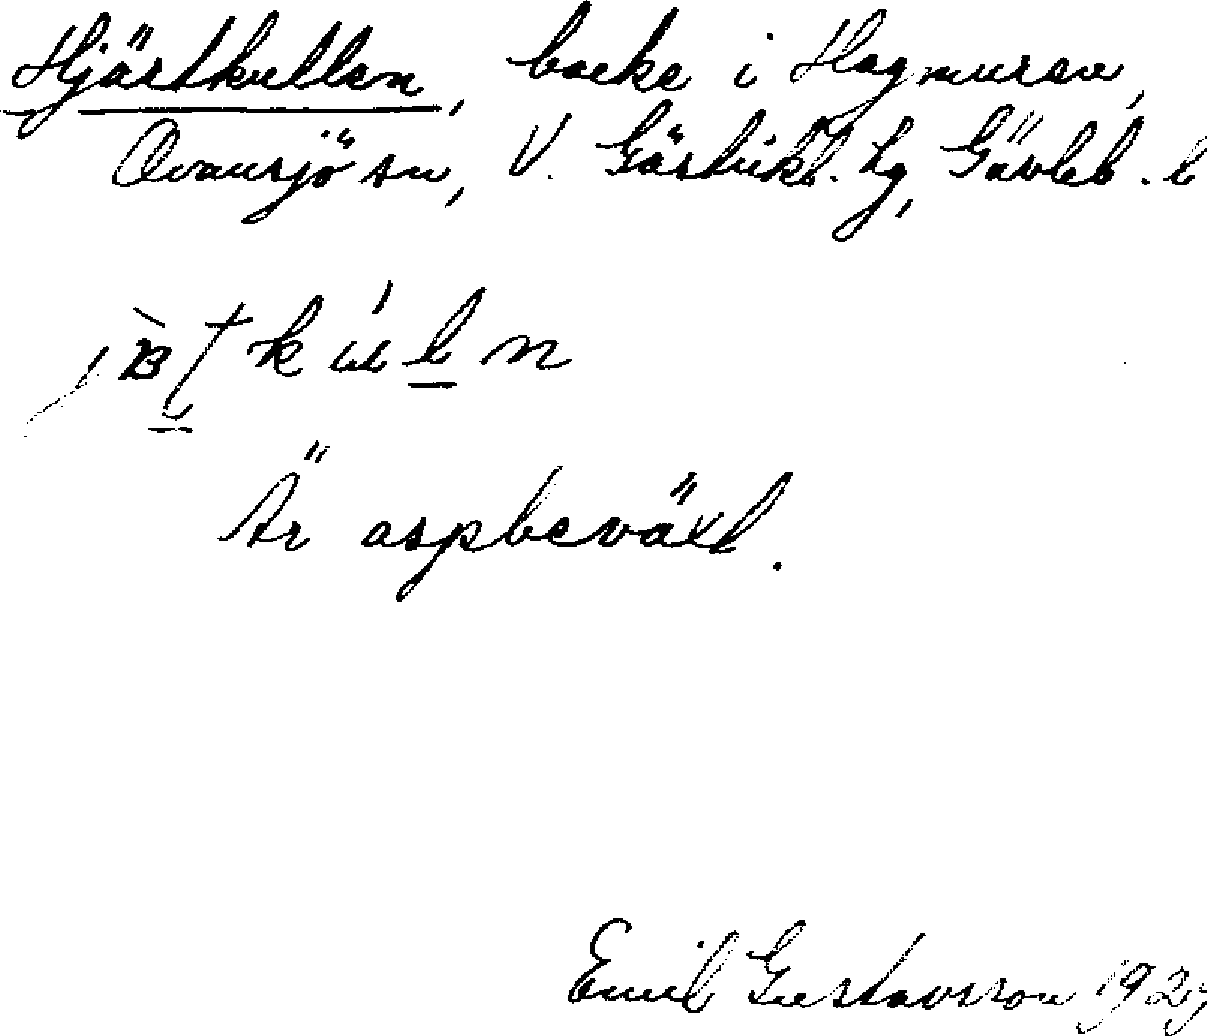 Hjärtkullen, backe i Hagmuren,
Ovansjö sn, V. Gästrikl. hg, Gävleb. l
Är aspbeväxt.
Emil Gustavsson 192